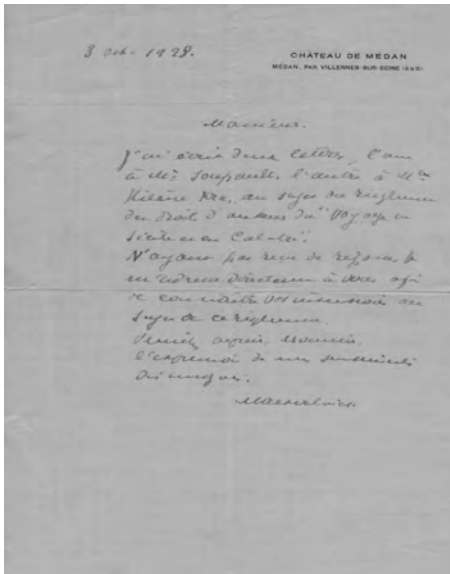 3 oct. 1928.
CHÂTEAU DE MÉDAN
MÉDAN, PAR VILLENNES-SUR-SEINE (S&O)
Monsieur.
J'ai écrit deux lettres, l'une
à Mr Soupault, l'autre à Mr
Hilaire, au sujet du règlement
du droit d'auteur du "Voyage en
Sicile et en Calabre".
N'ayant pas reçu de réponse, je
m'adresse directement à vous afin
de connaître vos intentions au
sujet de ce règlement.
Veuillez agréer, Monsieur,
l'expression de mes sentiments
distingués.